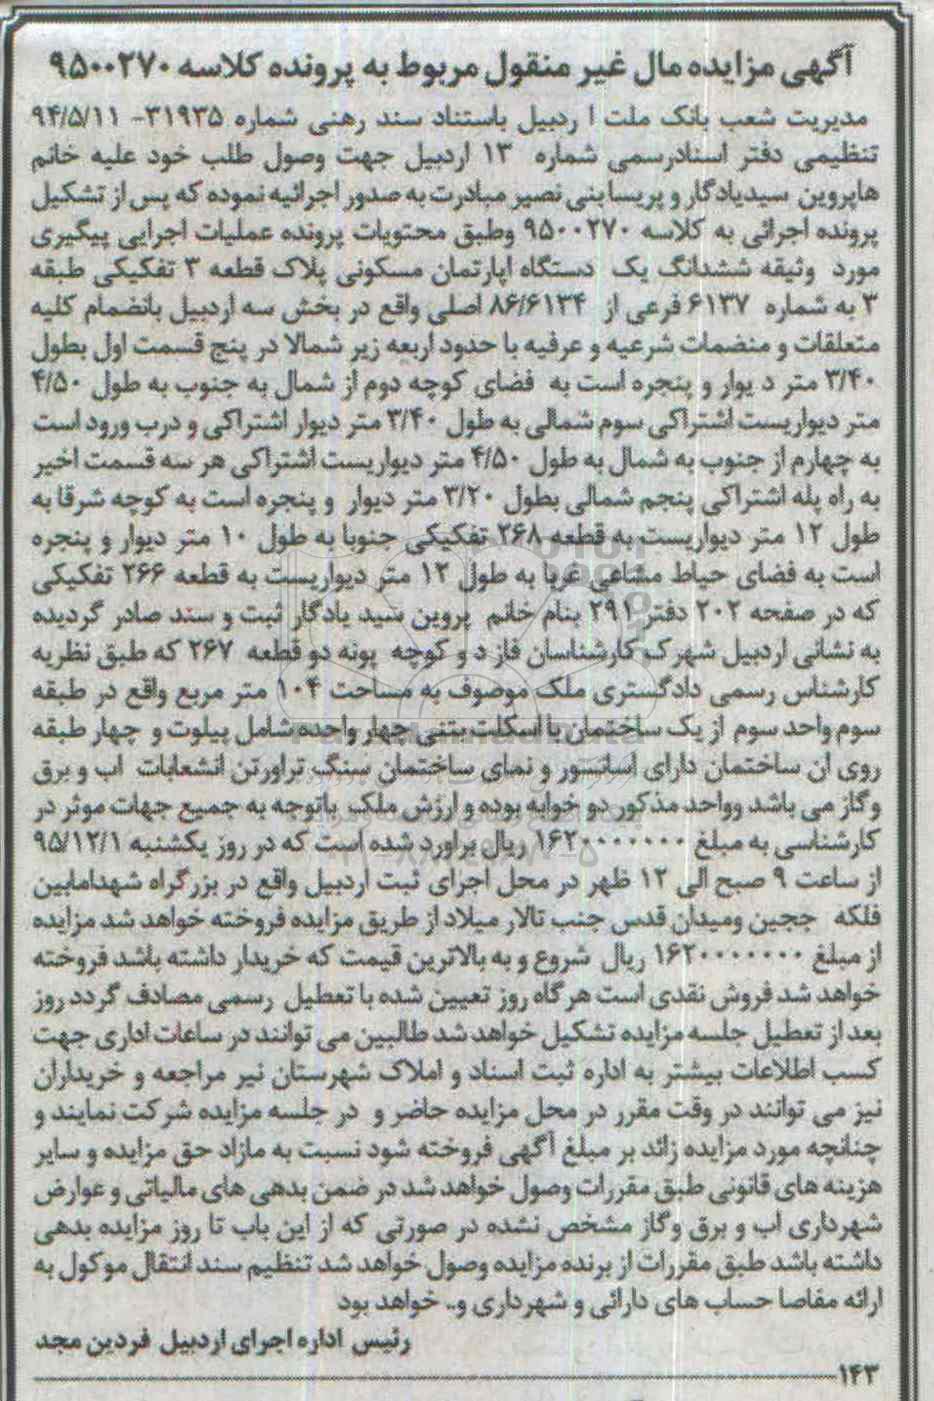 آگهی مزایده مال غیر منقول مربوط به پرونده کلاسه ۹۵۰۰۲۷۰
مدیریت شعب بانک ملت ا ردبیل باستناد سند رهنی شماره ۳۱۹۳۵- ۹۴/۵/۱۱
تنظیمی دفتر اسنادرسمی شماره ۱۳ اردبیل جهت وصول طلب خود علیه خانم
هاپروین سیدیادگار و پریسا بنی نصیر مبادرت به صدور اجرائیه نموده که پس از تشکیل
پرونده اجرائی به کلاسه ۹۵۰۰۲۷۰ وطبق محتویات پرونده عملیات اجرایی پیگیری
مورد وثیقه ششدانگ یک دستگاه اپارتمان مسکونی پلاک قطعه ۳ تفکیکی طبقه
۳ به شماره ۶۱۳۷ فرعی از ۸۶/۶۱۳۴ اصلی واقع در بخش سه اردبیل بانضمام کلیه
متعلقات و منضمات شرعیه و عرفیه با حدود اربعه زیر شمالا در پنج قسمت اول بطول
۳/۴۰ متر د یوار و پنجره است به فضای کوچه دوم از شمال به جنوب به طول ۴/۵۰
متر دیواریست اشتراکی سوم شمالی به طول ۲/۴۰ متر دیوار اشتراکی و درب ورود است
به چهارم از جنوب به شمال به طول ۴/۵۰ متر دیواریست اشتراکی هر سه قسمت اخیر
به راه پله اشتراکی پنجم شمالی بطول ۳/۲۰ متر دیوار و پنجره است به کوچه شرقا به
طول ۱۲ متر دیواریست به قطعه ۲۶۸ تفکیکی جنوبا به طول ۱۰ متر دیوار و پنجره
است به فضای حیاط مشاعی غربا به طول ۱۲ متر دیواریست به قطعه ۲۶۶ تفکیکی
که در صفحه ۲۰۲ دفتر ۲۹۱ بنام خانم پروین سید یادگار ثبت و سند صادر گردیده
به نشانی اردبیل شهرک کارشناسان فاز د و کوچه پونه دو قطعه ۲۶۷ که طبق نظریه
کارشناس رسمی دادگستری ملک موصوف به مساحت ۱۰۴ متر مربع واقع در طبقه
سوم واحد سوم از یک ساختمان با اسکلت بتنی چهار واحده شامل پیلوت و چهار طبقه
روی ان ساختمان دارای اسانسور و نمای ساختمان سنگ تراورتن انشعابات اب و برق
وگاز می باشد وواحد مذکور دو خوابه بوده و ارزش ملک باتوجه به جمیع جهات موثر در
کارشناسی به مبلغ ۱۶۲۰۰۰۰۰۰۰ ریال براورد شده است که در روز یکشنبه ۹۵/۱۲/۱
از ساعت ۹ صبح الی ۱۲ ظهر در محل اجرای ثبت اردبیل واقع در بزرگراه شهدامابین
فلکه ججین ومیدان قدس جنب تالار میلاد از طریق مزایده فروخته خواهد شد مزایده
از مبلغ ۱۶۲۰۰۰۰۰۰۰ ریال شروع و به بالاترین قیمت که خریدار داشته باشد فروخته
خواهد شد فروش نقدی است هر گاه روز تعیین شده با تعطیل رسمی مصادف گردد روز
بعد از تعطیل جلسه مزایده تشکیل خواهد شد طالبین می توانند در ساعات اداری جهت
کسب اطلاعات بیشتر به اداره ثبت اسناد و املاک شهرستان نیر مراجعه و خریداران
نیز می توانند در وقت مقرر در محل مزایده حاضر و در جلسه مزایده شرکت نمایند و
چنانچه مورد مزایده زائد بر مبلغ آگهی فروخته شود نسبت به مازاد حق مزایده و سایر
هزینه های قانونی طبق مقررات وصول خواهد شد در ضمن بدهی های مالیاتی و عوارض
شهرداری اب و برق وگاز مشخص نشده در صورتی که از این باب تا روز مزایده بدهی
داشته باشد طبق مقررات از برنده مزایده وصول خواهد شد تنظیم سند انتقال موکول به
ارائه مفاصا حساب های دارائی و شهرداری و.. خواهد بود
رئیس اداره اجرای اردبیل فردین مجد
۱۴۳